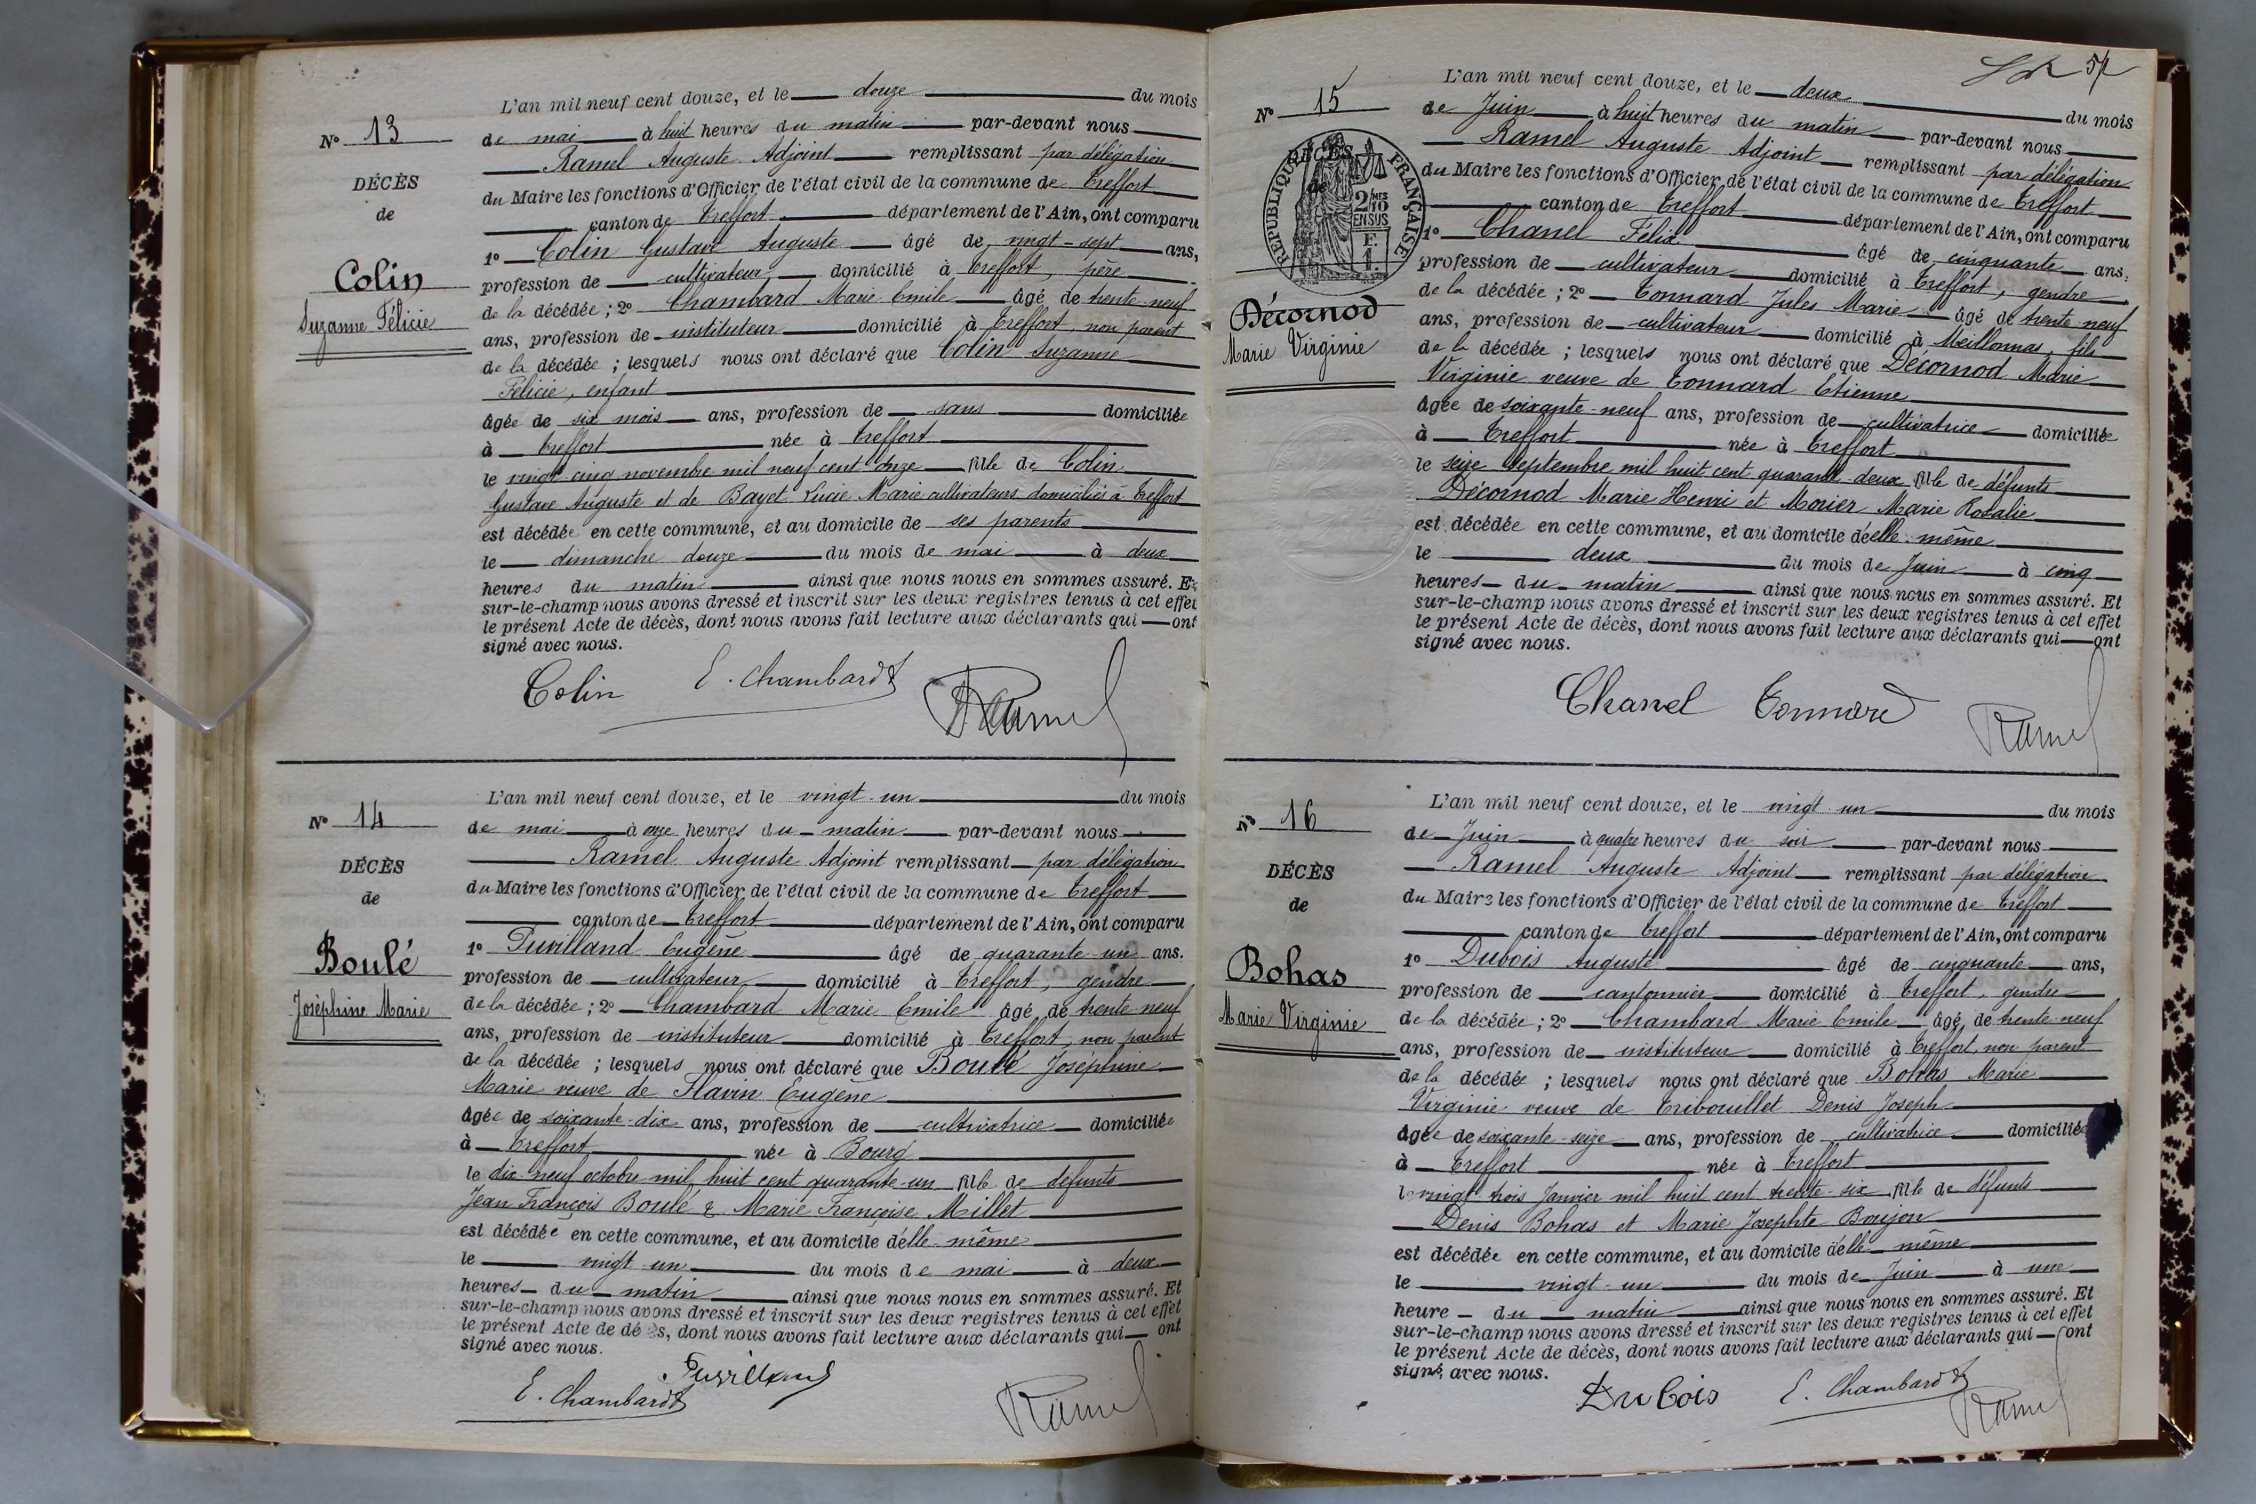 L'an mil neuf cent douze, et le douze du mois
de mai à huit heures du matin par-devant nous
Ramel Auguste Adjoint remplissant par délégation
du Maire les fonctions d'Officier de l'état civil de la commune de Treffort
canton de Treffort département de l'Ain, ont comparu
1º Colin Gustave Auguste âgé de vingt-sept ans,
profession de cultivateur, domicilié à Treffort, père
de la décédée ; 2º Chambard Marie Emile âgé de trente-neuf
ans, profession de instituteur domicilié à Treffort, non parent
de la décédée ; lesquels nous ont déclaré que Colin Suzanne
Félicie, enfant
âgée de six mois ans, profession de sans domiciliée
à Treffort née à Treffort
le vingt-cinq novembre mil neuf cent onze fille de Colin
Gustave Auguste et de Bayet Lucie Marie cultivateurs domiciliés à Treffort
est décédée en cette commune, et au domicile de ses parents
le dimanche douze du mois de mai à deux
heures du matin ainsi que nous nous en sommes assuré. Et
sur-le-champ nous avons dressé et inscrit sur les deux registres tenus à cet effet
le présent Acte de décès, dont nous avons fait lecture aux déclarants qui ont
signé avec nous.
Nº 13
DÉCÈS
de
Colin
Suzanne Félicie
Colin E. Chambard Ramel
L'an mil neuf cent douze, et le vingt-un du mois
de mai à onze heures du matin par-devant nous
Ramel Auguste Adjoint remplissant par délégation
du Maire les fonctions d'Officier de l'état civil de la commune de Treffort
canton de Treffort département de l'Ain, ont comparu
1º Puvilland Eugène âgé de quarante-un ans.
profession de cultivateur domicilié à Treffort, gendre
de la décédée ; 2º Chambard Marie Emile âgé de trente neuf
ans, profession de instituteur domicilié à Treffort, non parent
de la décédée ; lesquels nous ont déclaré que Boulé Joséphine
Marie veuve de Flavin Eugène
âgée de soixante-dix ans, profession de cultivatrice domiciliée
à Treffort née à Bourg
le dix-neuf octobre mil huit cent quarante-un fille de défunts
Jean François Boulé & Marie Françoise Millet
est décédée en cette commune, et au domicile d'elle-même
le vingt-un du mois de mai à deux
heures du matin ainsi que nous nous en sommes assuré. Et
sur-le-champ nous avons dressé et inscrit sur les deux registres tenus à cet effet
le présent Acte de décès, dont nous avons fait lecture aux déclarants qui ont
signé avec nous.
Nº 14
DÉCÈS
de
Boulé
Joséphine Marie
E. Chambard Puvilland Ramel
57
L'an mil neuf cent douze, et le deux du mois
de Juin à huit heures du matin par-devant nous
Ramel Auguste Adjoint remplissant par délégation
du Maire les fonctions d'Officier de l'état civil de la commune de Treffort
canton de Treffort département de l'Ain, ont comparu
1º Chanel Félix âgé de cinquante ans,
profession de cultivateur domicilié à Treffort, gendre
de la décédée ; 2º Tonnard Jules Marie âgé de trente neuf
ans, profession de cultivateur domicilié à Meillonnas, fils
de la décédée ; lesquels nous ont déclaré que Décornod Marie
Virginie veuve de Tonnard Etienne
âgée de soixante-neuf ans, profession de cultivatrice domiciliée
à Treffort née à Treffort
le seize septembre mil huit cent quarante-deux fille de défunts
Décornod Marie Henri et Morier Marie Rosalie
est décédée en cette commune, et au domicile d'elle-même
le deux du mois de Juin à cinq
heures du matin ainsi que nous nous en sommes assuré. Et
sur-le-champ nous avons dressé et inscrit sur les deux registres tenus à cet effet
le présent Acte de décès, dont nous avons fait lecture aux déclarants qui ont
signé avec nous.
Nº 15
DÉCÈS
de
RÉPUBLIQUE FRANÇAISE
2/10 EN SUS
Décornod
Marie Virginie
Chanel Tonnard Ramel
L'an mil neuf cent douze, et le vingt-un du mois
de Juin à quatre heures du soir par-devant nous
Ramel Auguste Adjoint remplissant par délégation
du Maire les fonctions d'Officier de l'état civil de la commune de Treffort
canton de Treffort département de l'Ain, ont comparu
1º Dubois Auguste âgé de cinquante ans,
profession de cantonnier domicilié à Treffort, gendre
de la décédée ; 2º Chambard Marie Emile âgé de trente-neuf
ans, profession de instituteur domicilié à Treffort, non parent
de la décédée ; lesquels nous ont déclaré que Bohas Marie
Virginie veuve de Tribouillet Denis Joseph
âgée de soixante-seize ans, profession de cultivatrice domiciliée
à Treffort née à Treffort
le vingt trois Janvier mil huit cent trente-six fille de défunts
Denis Bohas et Marie Josephte Boujon
est décédée en cette commune, et au domicile d'elle-même
le vingt-un du mois de Juin à une
heure du matin ainsi que nous nous en sommes assuré. Et
sur-le-champ nous avons dressé et inscrit sur les deux registres tenus à cet effet
le présent Acte de décès, dont nous avons fait lecture aux déclarants qui ont
signé, avec nous.
Nº 16
DÉCÈS
de
Bohas
Marie Virginie
Dubois E. Chambard Ramel